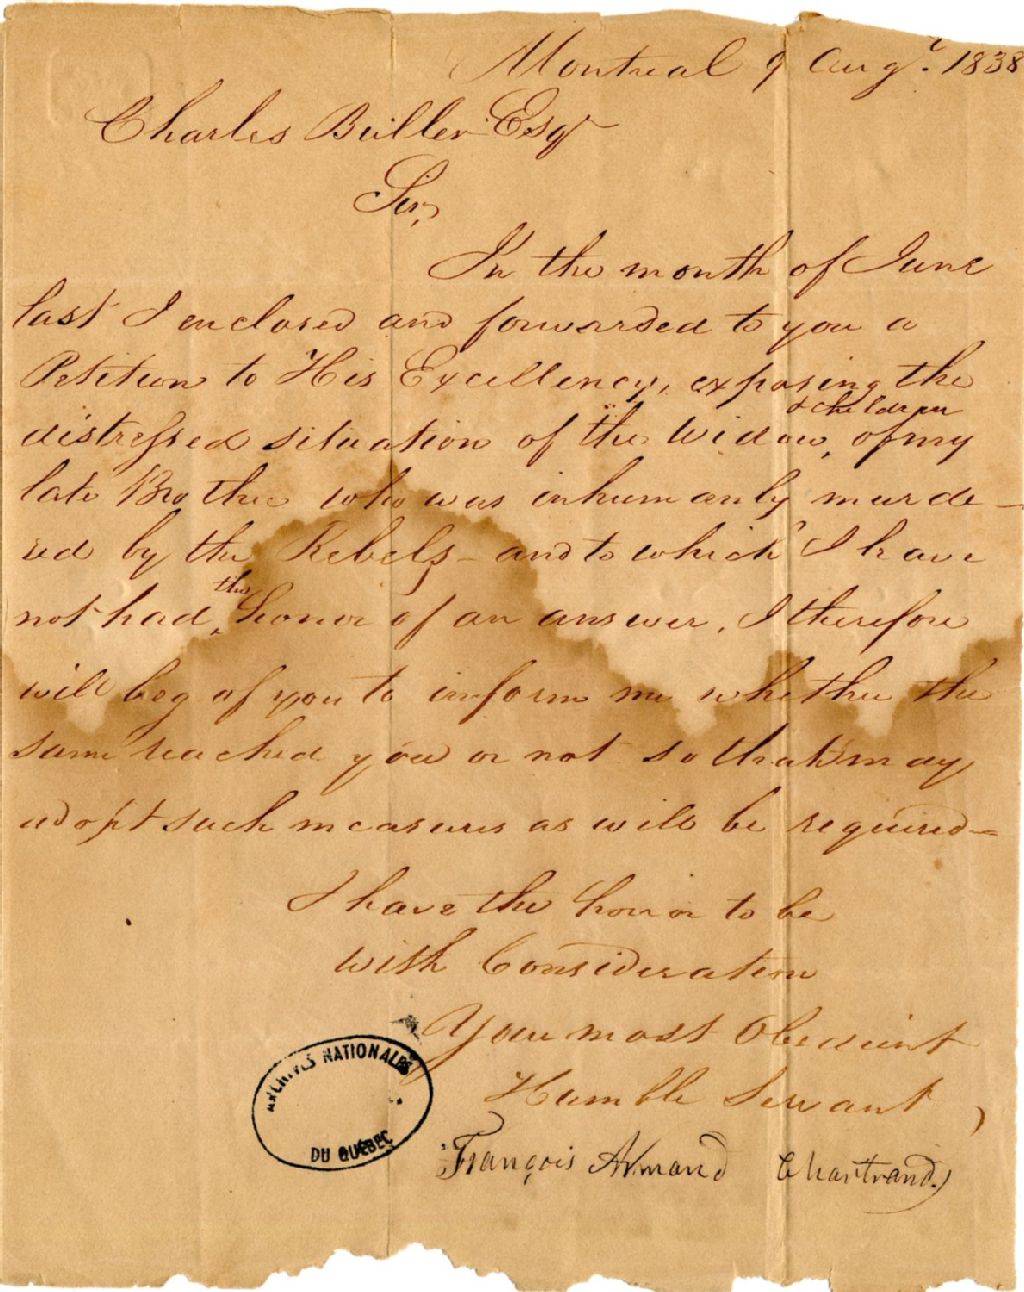 Montreal 9 Augt. 1838
Charles Buller Esqr
Sir,
In the month of June
last I enclosed and forwarded to you a
Petition to His Excellency, exposing the
& children
distressed situation of the Widow, of my
late Brother who was inhumanly murde-
red by the Rebels - and to which I have
the
not had, honor of an answer, I therefore
will beg of you to inform me whether the
same reached you or not so that I may
adopt such measures as will be required -
I have the honor to be
with Consideration
Your most Obedient
Humble Servant,
François Armand Chartrand.
ARCHIVES NATIONALES
DU QUÉBEC